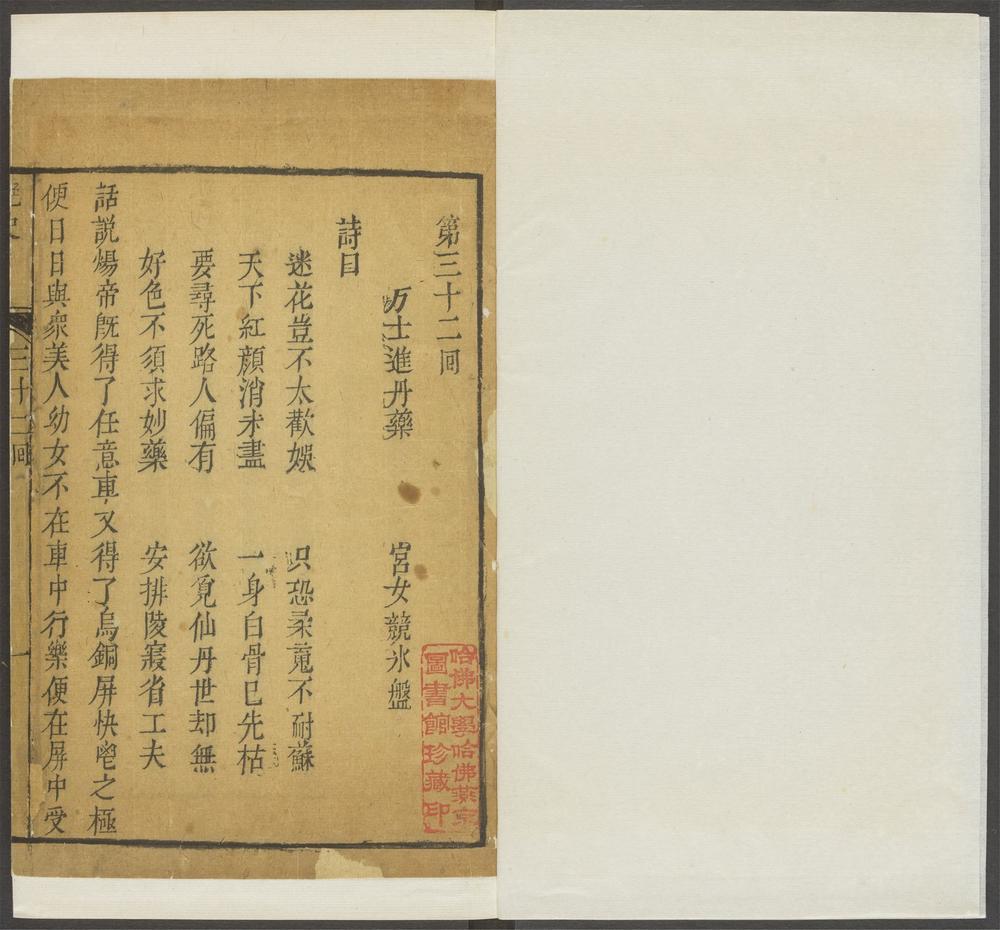 第三十二回
方士進丹藥 宮女競氷盤
詩曰
迷花豈不太歡娛 只恐柔魂不耐蘇
天下紅顏消未盡 一身白骨已先枯
要尋死路人偏有 欲覓仙丹世却無
好色不須求妙藥 安排陵寢省工夫
話說煬帝旣得了任意車又得了烏銅屏快䆿之極
便日日與衆美人幼女不在車中行樂便在屏中受
艷史
三十二回
一
哈佛大學哈佛燕京
圖書館珍藏印